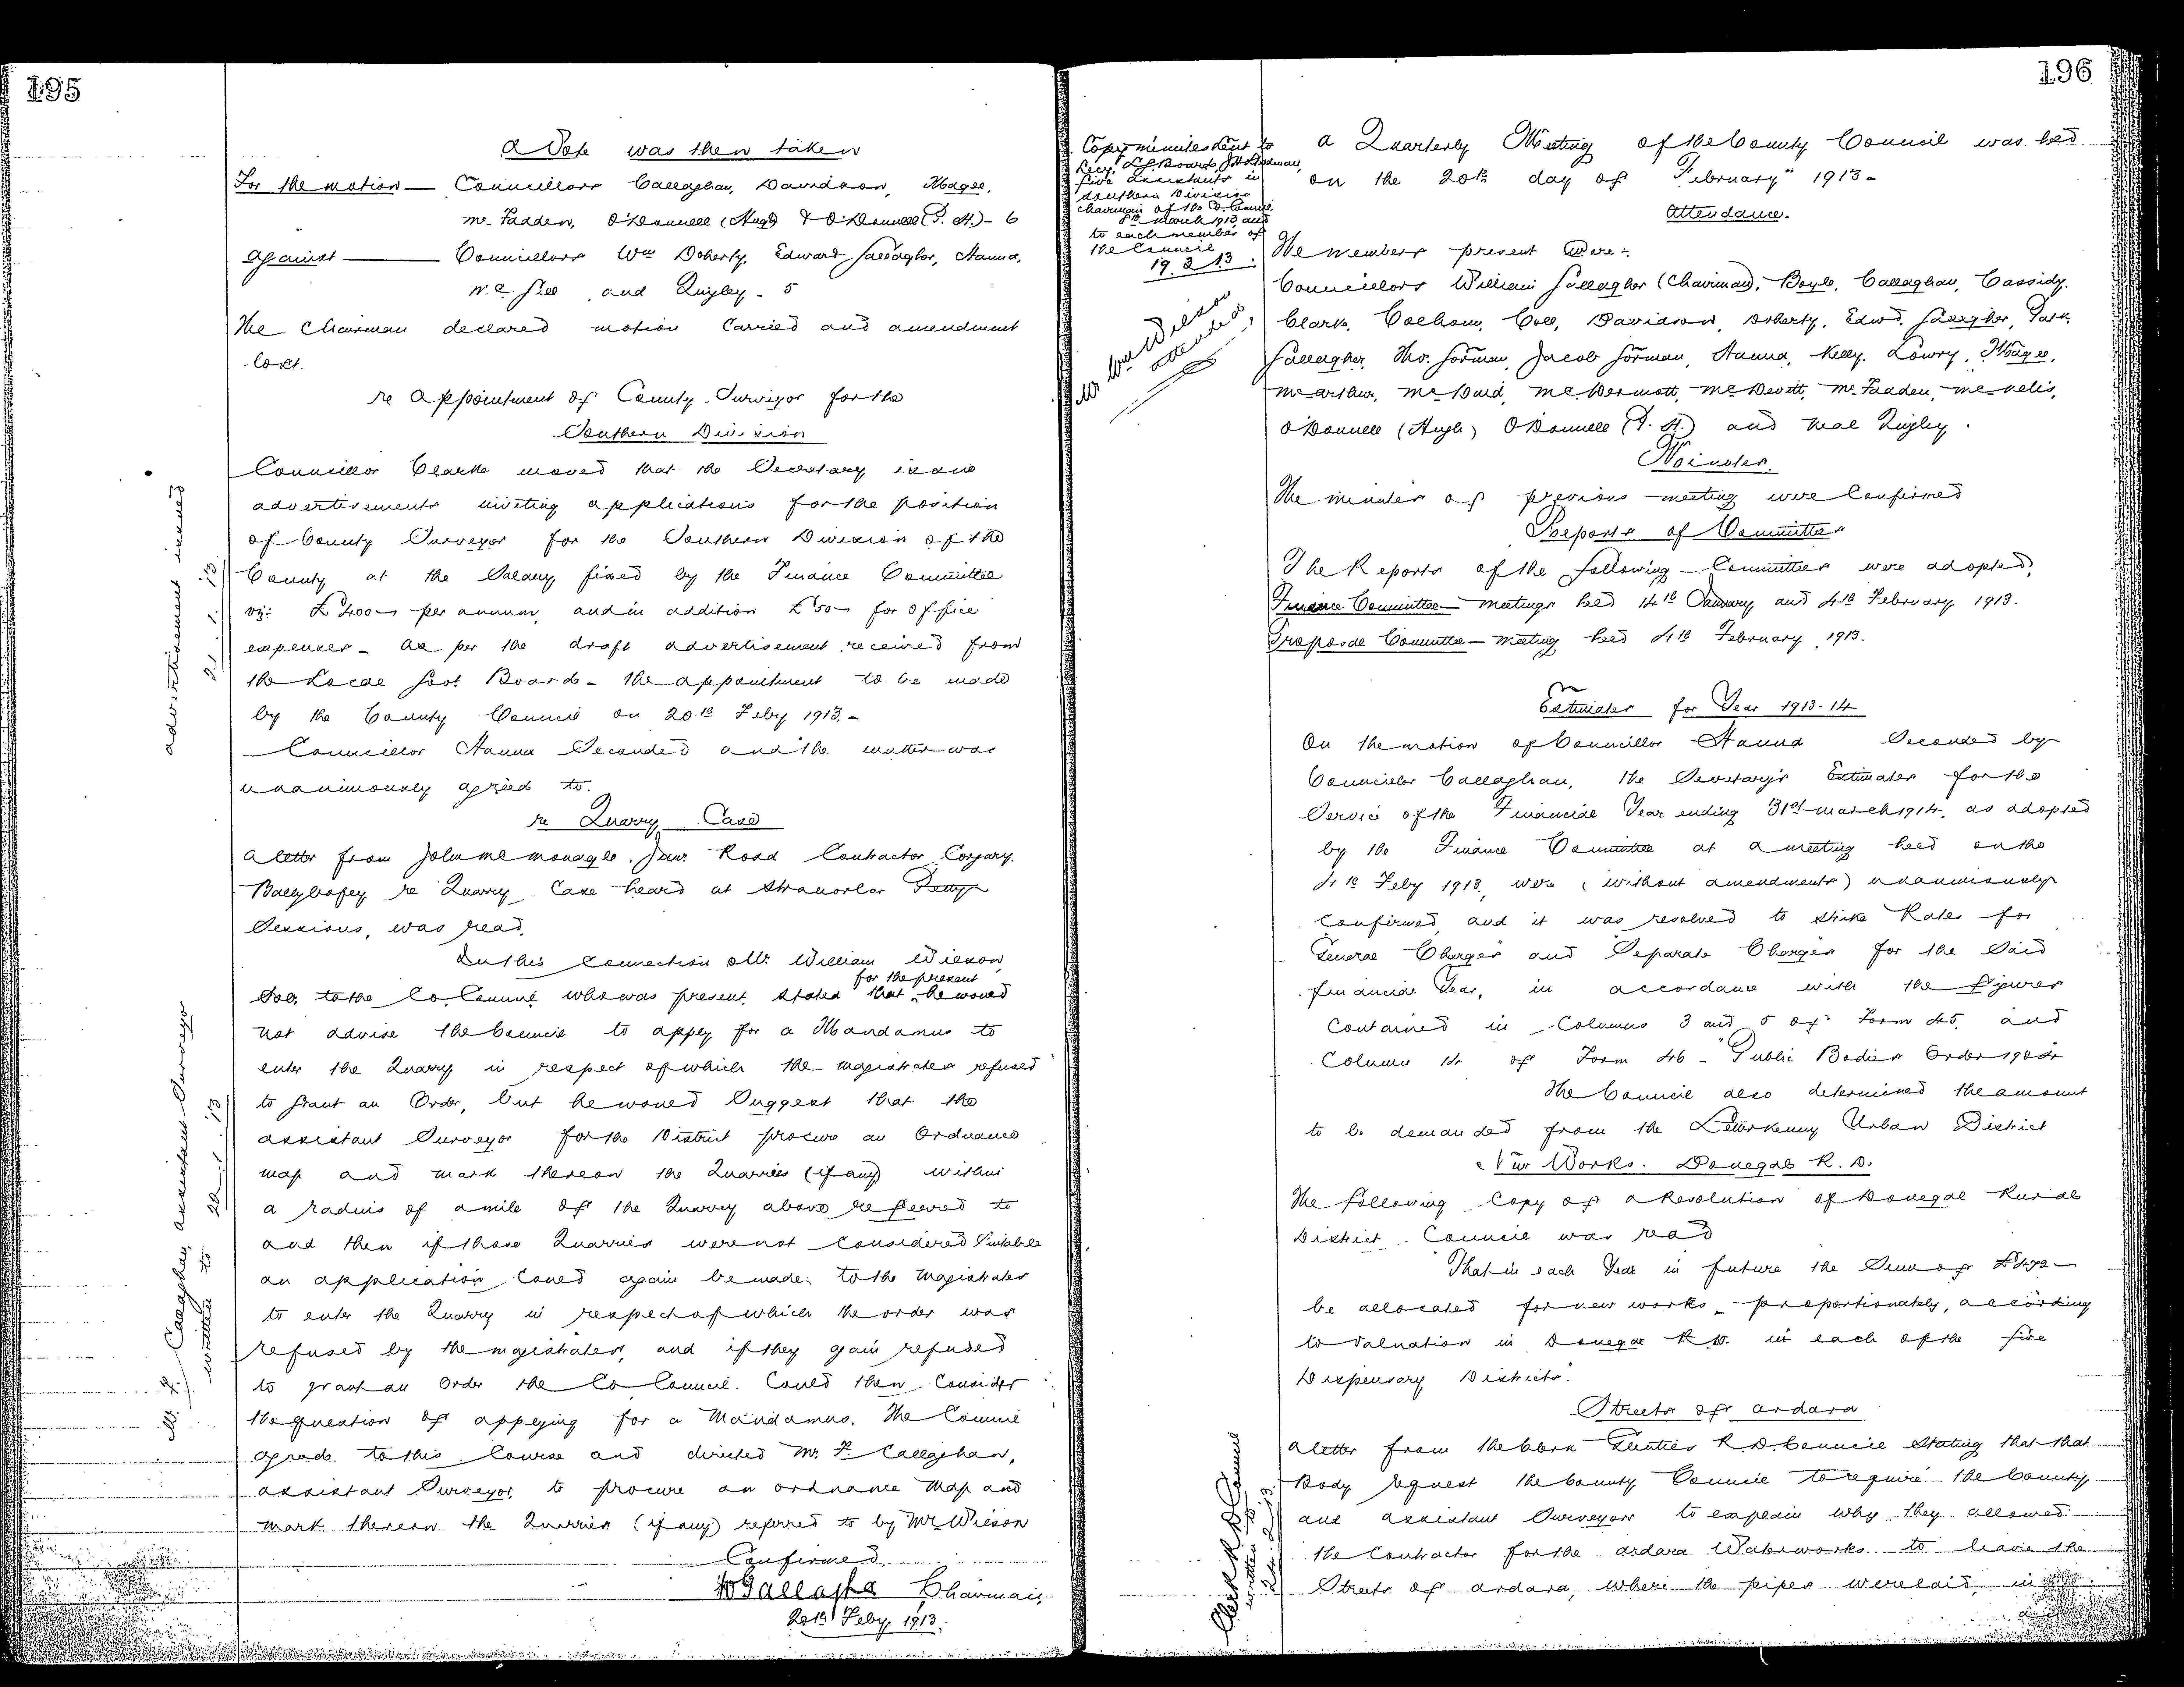 195
A Vote was then taken
For the motion — Councillors Callaghan, Davidson, Magee,
McFadden, O'Donnell (Hugh) & O'Donnell (P. H.) - 6
Against — Councillors Wm Doherty, Edward Gallagher, Hanna,
and Quigley - 5
The Chairman declared motion carried and amendment
lost.
re Appointment of County Surveyor for the
Southern Division
Councillor Clarke moved that the Secretary issue
advertisements inviting applications for the position
of County Surveyor for the Southern Division of the
County at the Salary fixed by the Finance Committee
viz: £400 per annum, and in addition £50 for Office
expenses - as per the draft advertisement received from
the Local Govt Board - the appointment to be made
by the County Council on 20th Feby 1913. -
Councillor Hanna Seconded and the matter was
unanimously agreed to.
advertisement issued
21/1/13
re Quarry Case
A letter from John McMonagle, Junr Road Contractor, Corgary,
Ballybofey re Quarry Case heard at Stranorlar Petty
Sessions, was read.
In this connection Mr. William Wilson,
Sol. to the Co. Council who was present, stated that for the present he would
not advise the Council to apply for a Mandamus to
enter the Quarry in respect of which the Magistrates refused
to grant an Order, but he would Suggest that the
assistant Surveyor for the District procure an Ordnance
map and mark thereon the Quarries (if any) within
a radius of a mile of the Quarry above referred to
and then if those Quarries were not considered Suitable
an application could again be made to the Magistrates
to enter the Quarry in respect of which the order was
refused by the magistrates, and if they gain refused
to grant an Order the Co Council Could then Consider
the question of applying for a Mandamus. The Council
agreed to this Course and directed Mr. F Callaghan,
assistant Surveyor, to procure an ordnance Map and
mark thereon the Quarries (if any) referred to by Mr Wilson
Callaghan, assistant Surveyor
written to 22/1/13
Confirmed,
W Gallagher Chairman,
20th Feby, 1913.
196
Copy minutes sent to
Secy. L G Board,
five assistants in
Southern Division
Chairman of the Co. Council
8th March 1913 and
to each member of
the Council
19.2.13.
Mr Wm Wilson
attended
A Quarterly Meeting of the County Council was held
on the 20th day of February 1913 -
Attendance.
The members present were:-
Councillors William Gallagher (Chairman), Boyle, Callaghan, Cassidy,
Clark, Colhoun, Coll, Davidson, Doherty, Edwd. Gallagher, Patk.
Gallagher, Thos. Gorman, Jacob Gorman, Hanna, Kelly, Lowry, Magee,
McArthur, McDaid, McDermott, McDevitt, McFadden, McNelis,
O'Donnell (Hugh) O'Donnell (P. H.) and Quigley.
Minutes.
The minutes of previous meeting were Confirmed
Reports of Committees
The Reports of the following Committees were adopted,
Finance Committee - meetings held 14th January and 4th February 1913.
Proposal Committee - meeting held 4th February 1913.
Estimates for Year 1913-14
On the motion of Councillor Hanna Seconded by
Councillor Callaghan, the Secretary's Estimates for the
Service of the Financial Year ending 31st March 1914, as adopted
by the Finance Committee at a meeting held on the
4th Feby 1913, were (without amendments) unanimously
Confirmed, and it was resolved to strike Rates for
General Charges and Separate Charges for the Said
financial Year, in accordance with the figures
contained in Columns 3 and 5 of Form 45, and
Column 14 of Form 46 - "Public Bodies Order 1904
The Council also determined the amount
to be demanded from the Letterkenny Urban District
New Works. Donegal R. D.
The following Copy of a Resolution of Donegal Rural
District Council was read
"That in each Year in future the Sum of £472 —
be allocated for new works - proportionately, according
to Valuation in Donegal R.D. in each of the five
Dispensary Districts".
Streets of Ardara
A letter from the Clerk Glenties R D Council Stating that that
Body request the County Council to require the County
and assistant Surveyors to explain why they allowed
the Contractor for the Ardara Waterworks to leave the
Streets of Ardara, where the pipes were laid, in
Clerk R D Council
written to